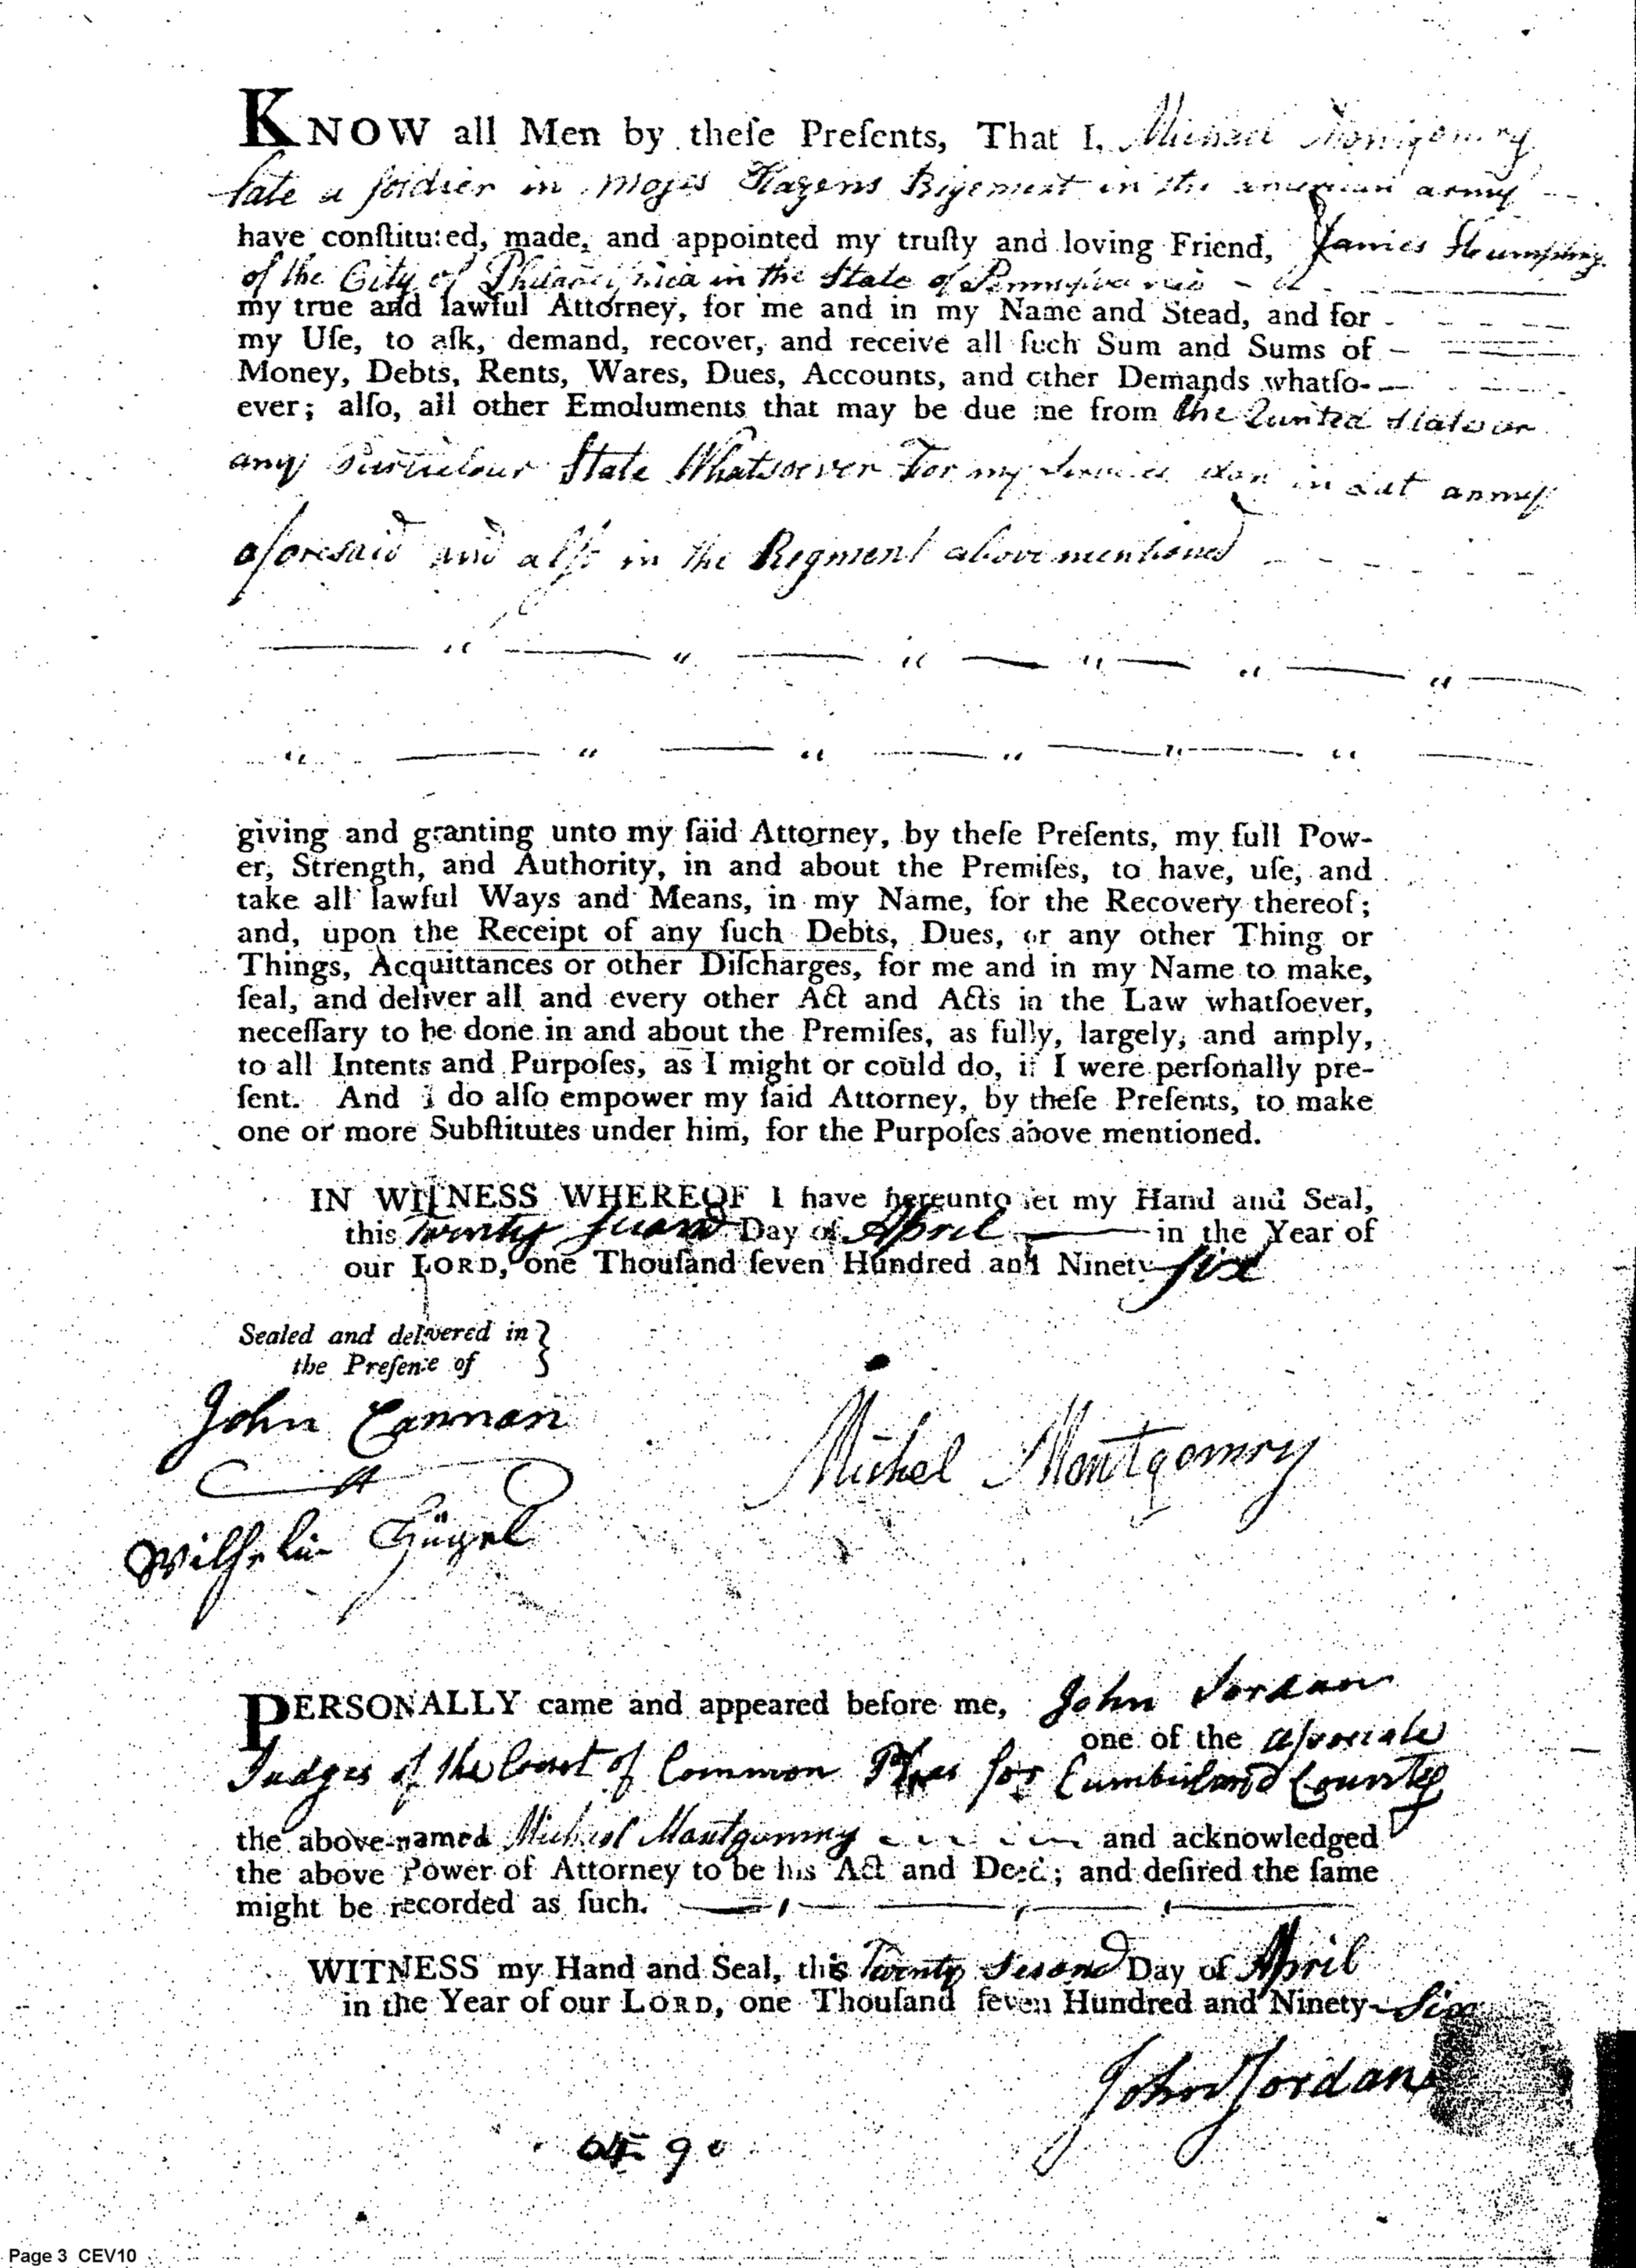 KNOW all Men by theſe Preſents, That I, Michael Montgomery
late a ſoldier in Moſes Hazens Rigement in the american army
have conſtituted, made, and appointed my truſty and loving Friend, James
of the City of Philadelphia in the State of Pennsylvania
my true and lawful Attorney, for me and in my Name and Stead, and for
my Uſe, to aſk, demand, recover, and receive all ſuch Sum and Sums of
Money, Debts, Rents, Wares, Dues, Accounts, and other Demands whatſo-
ever; alſo, all other Emoluments that may be due me from the United States or
any State Whatsoever For my Services in army
aforesaid and alſo in the Regment above mentioned
giving and granting unto my ſaid Attorney, by theſe Preſents, my full Pow-
er, Strength, and Authority, in and about the Premiſes, to have, uſe, and
take all lawful Ways and Means, in my Name, for the Recovery thereof;
and, upon the Receipt of any ſuch Debts, Dues, or any other Thing or
Things, Acquittances or other Diſcharges, for me and in my Name to make,
ſeal, and deliver all and every other Act and Acts in the Law whatſoever,
neceſſary to be done in and about the Premiſes, as fully, largely, and amply,
to all Intents and Purpoſes, as I might or could do, if I were perſonally pre-
ſent. And I do alſo empower my ſaid Attorney, by theſe Preſents, to make
one or more Subſtitutes under him, for the Purpoſes above mentioned.
IN WITNESS WHEREOF I have hereunto ſet my Hand and Seal,
this twenty Day of April in the Year of
our LORD, one Thouſand ſeven Hundred and Ninety ſix
Sealed and delivered in }
the Preſence of
John Cannan
Michel Montgomry
Wilhelm Hügel
PERSONALLY came and appeared before me, John Jordan
one of the aſsociate
Judges of the Court of Common Pleas for Cumberland County
the above-named Michael Montgommry and acknowledged
the above Power of Attorney to be his Act and Deed; and deſired the ſame
might be recorded as ſuch.
WITNESS my Hand and Seal, this Twenty Second Day of April
in the Year of our LORD, one Thouſand ſeven Hundred and Ninety-Six
John Jordan
Page 3 CEV10